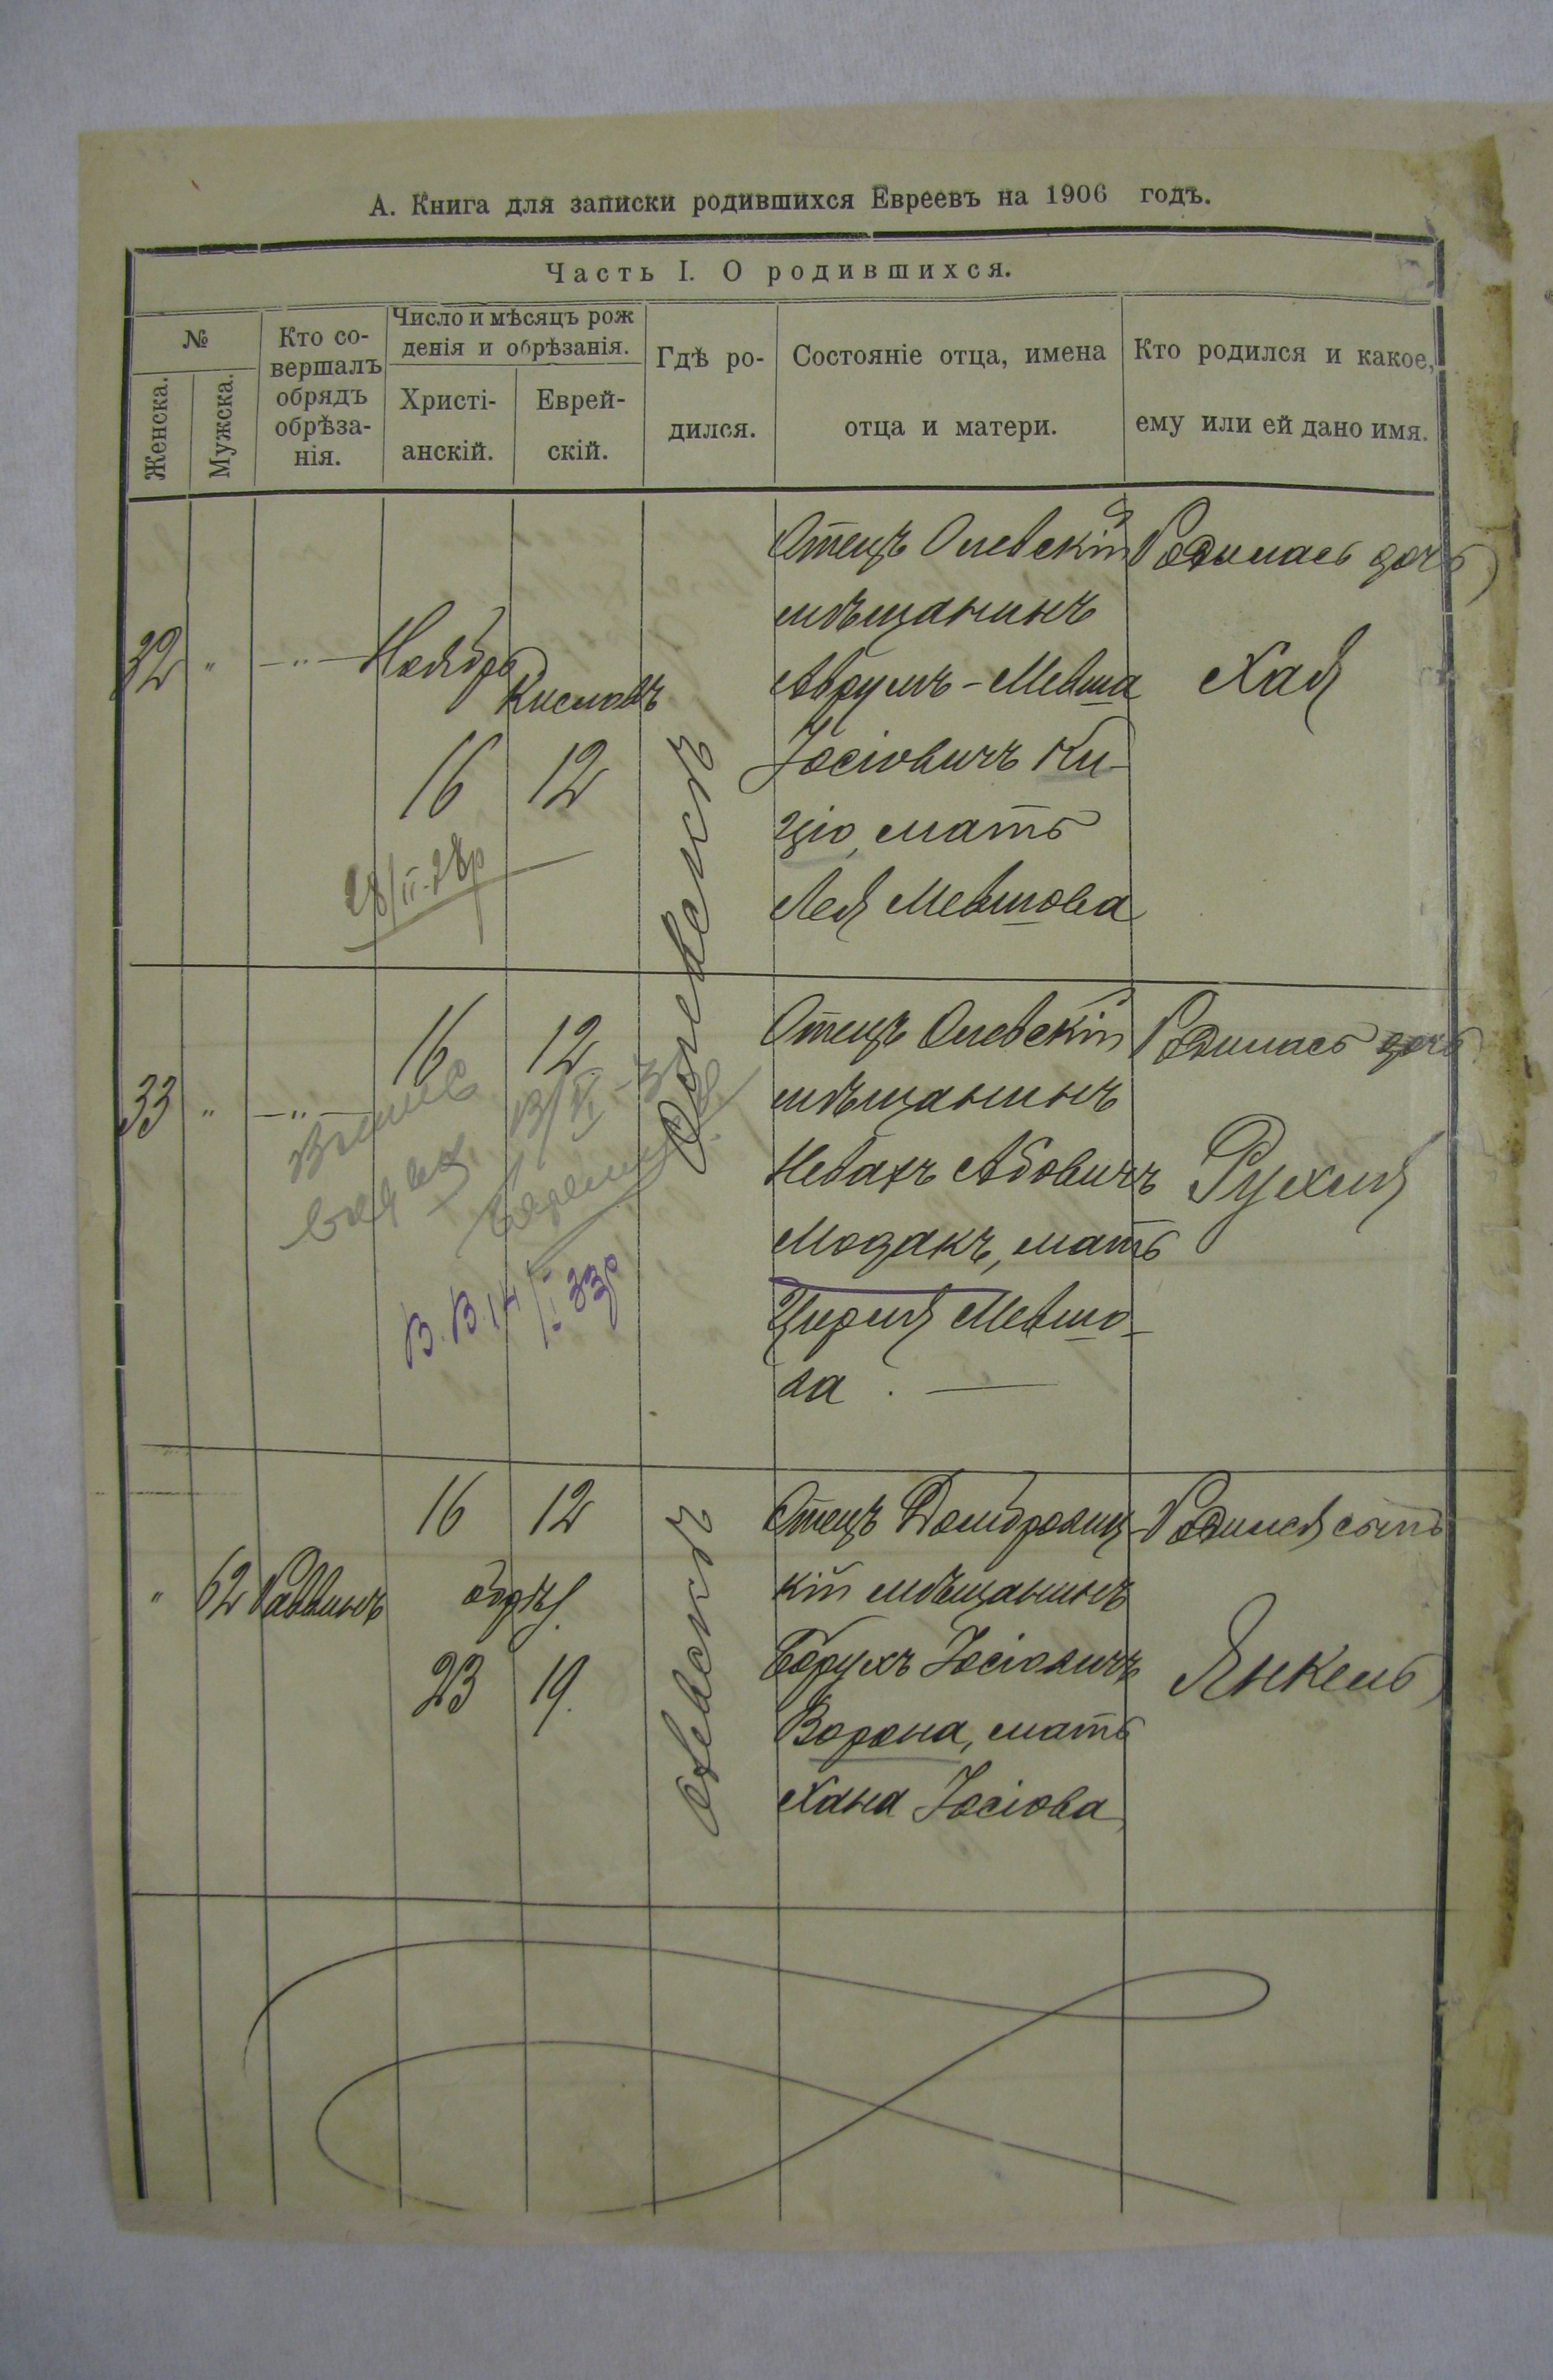 А. Книга для записки родившихся Евреевъ на 1906 годъ.
Часть I. О родившихся.
№
Женска.
Мужска.
Кто со-
вершалъ
обрядъ
обрѣза-
нія.
Число и мѣсяцъ рож
денія и обрѣзанія.
Христі-
анскій.
Еврей-
скій.
Гдѣ ро-
дился.
Состояніе отца, имена
отца и матери.
Кто родился и какое,
ему или ей дано имя.
32
"
—"—
Ноябрь
Кислевъ
16
12
28/II-28р
Олевскъ
Отецъ Олевскій
мѣщанинъ
Аврумъ-Мевша
Іосіовичъ Ки-
ціо, мать
Лея Мевшова
Родилась дочь
Хая
33
"
—"—
16
12
В.В. 14/I 33р
Отецъ Олевскій
мѣщанинъ
Невахъ Абовичъ
Мозакъ, мать
Цирля Мевшо-
ва. —
Родилась дочь
Рухля
"
62
Раввинъ
16
12
обрѣз.
23
19.
Олевскъ
Отецъ Домбровиц
кій мѣщанинъ
Борухъ Іосіовичъ
Ворона, мать
Хана Іосіова
Родился сынъ
Янкель